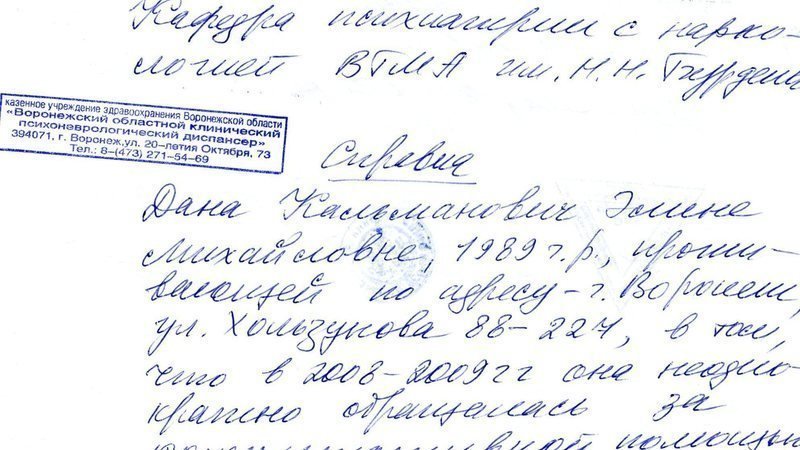 Кафедра психиатрии с нарко-
логией ВГМА им. Н. Н. Бурденко
казенное учреждение здравоохранения Воронежской области
«Воронежский областной клинический
психоневрологический диспансер»
394071, г. Воронеж,ул. 20-летия Октября, 73
Тел.: 8-(473) 271-54-69
Справка
Дана Кальманович Элине
Михайловне, 1989 г.р., прожи-
вающей по адресу - г. Воронеж,
ул. Хользунова 88-227, в том,
что в 2008-2009 гг она неодно-
кратно обращалась за
помощью